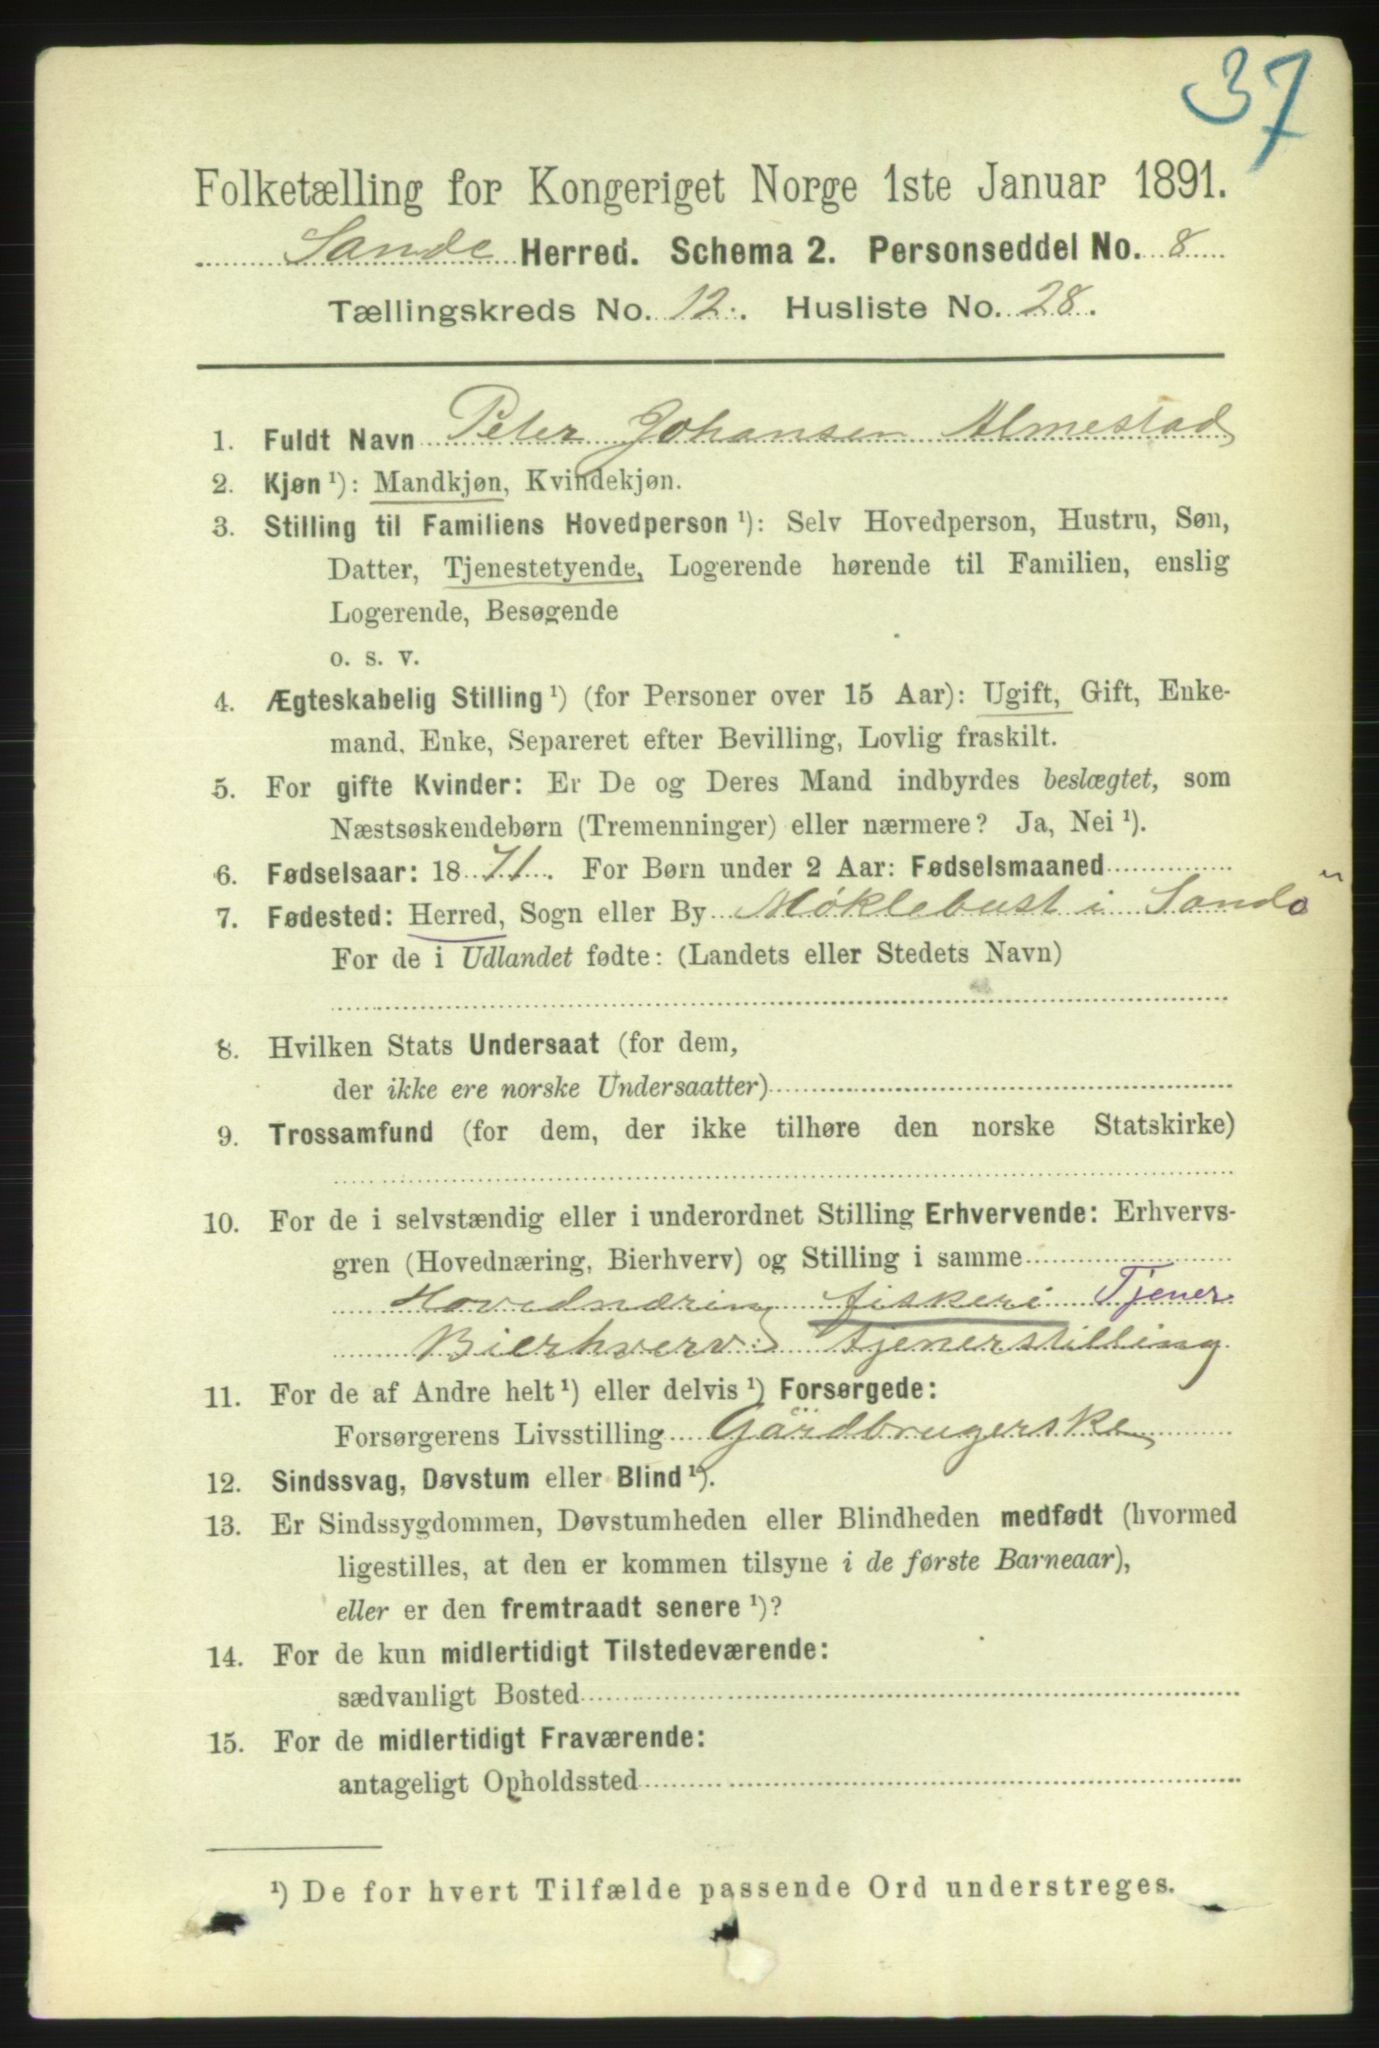 37
Folketælling for Kongeriget Norge 1ste Januar 1891.
Sande Herred. Schema 2. Personseddel No. 8
Tællingskreds No. 12. Husliste No. 28.
1. Fuldt Navn Peter Johansen Almestad
2. Kjøn ¹): Mandkjøn, Kvindekjøn.
3. Stilling til Familiens Hovedperson ¹): Selv Hovedperson, Hustru, Søn,
Datter, Tjenestetyende, Logerende hørende til Familien, enslig
Logerende, Besøgende
o. s. v.
4. Ægteskabelig Stilling ¹) (for Personer over 15 Aar): Ugift, Gift, Enke-
mand, Enke, Separeret efter Bevilling, Lovlig fraskilt.
5. For gifte Kvinder: Er De og Deres Mand indbyrdes beslægtet, som
Næstsøskendebørn (Tremenninger) eller nærmere? Ja, Nei ¹).
6. Fødselsaar: 1871. For Børn under 2 Aar: Fødselsmaaned
7. Fødested: Herred, Sogn eller By Møklebust i Sandö
For de i Udlandet fødte: (Landets eller Stedets Navn)
8. Hvilken Stats Undersaat (for dem,
der ikke ere norske Undersaatter)
9. Trossamfund (for dem, der ikke tilhøre den norske Statskirke)
10. For de i selvstændig eller i underordnet Stilling Erhvervende: Erhvervs-
gren (Hovednæring, Bierhverv) og Stilling i samme
Hovednæring fiskeri Tjener
Bierhverv: tjenerstilling
11. For de af Andre helt ¹) eller delvis ¹) Forsørgede:
Forsørgerens Livsstilling Gårdbrugerske
12. Sindssvag, Døvstum eller Blind ¹).
13. Er Sindssygdommen, Døvstumheden eller Blindheden medfødt (hvormed
ligestilles, at den er kommen tilsyne i de første Barneaar),
eller er den fremtraadt senere ¹)?
14. For de kun midlertidigt Tilstedeværende:
sædvanligt Bosted
15. For de midlertidigt Fraværende:
antageligt Opholdssted
¹) De for hvert Tilfælde passende Ord understreges.